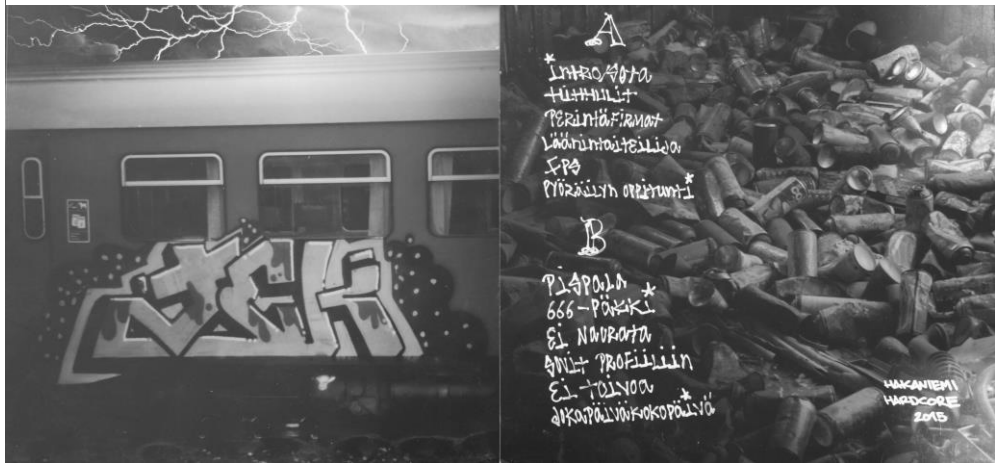 A
*iNTRO/SOTA
HiHHULiT
PERiNTÄFiRMAT
LÄÄNiNTAiTEiLiJA
FPS
PYÖRÄiLYN OPPiTUNTi*
B
PiSPALA
666-PÄKKi*
Ei NAURATA
SNiT PROFiiLiiN
Ei TOiVOA
JOKAPÄiVÄKOKOPÄiVÄ*
HAKANIEMI
HARDCORE
2015